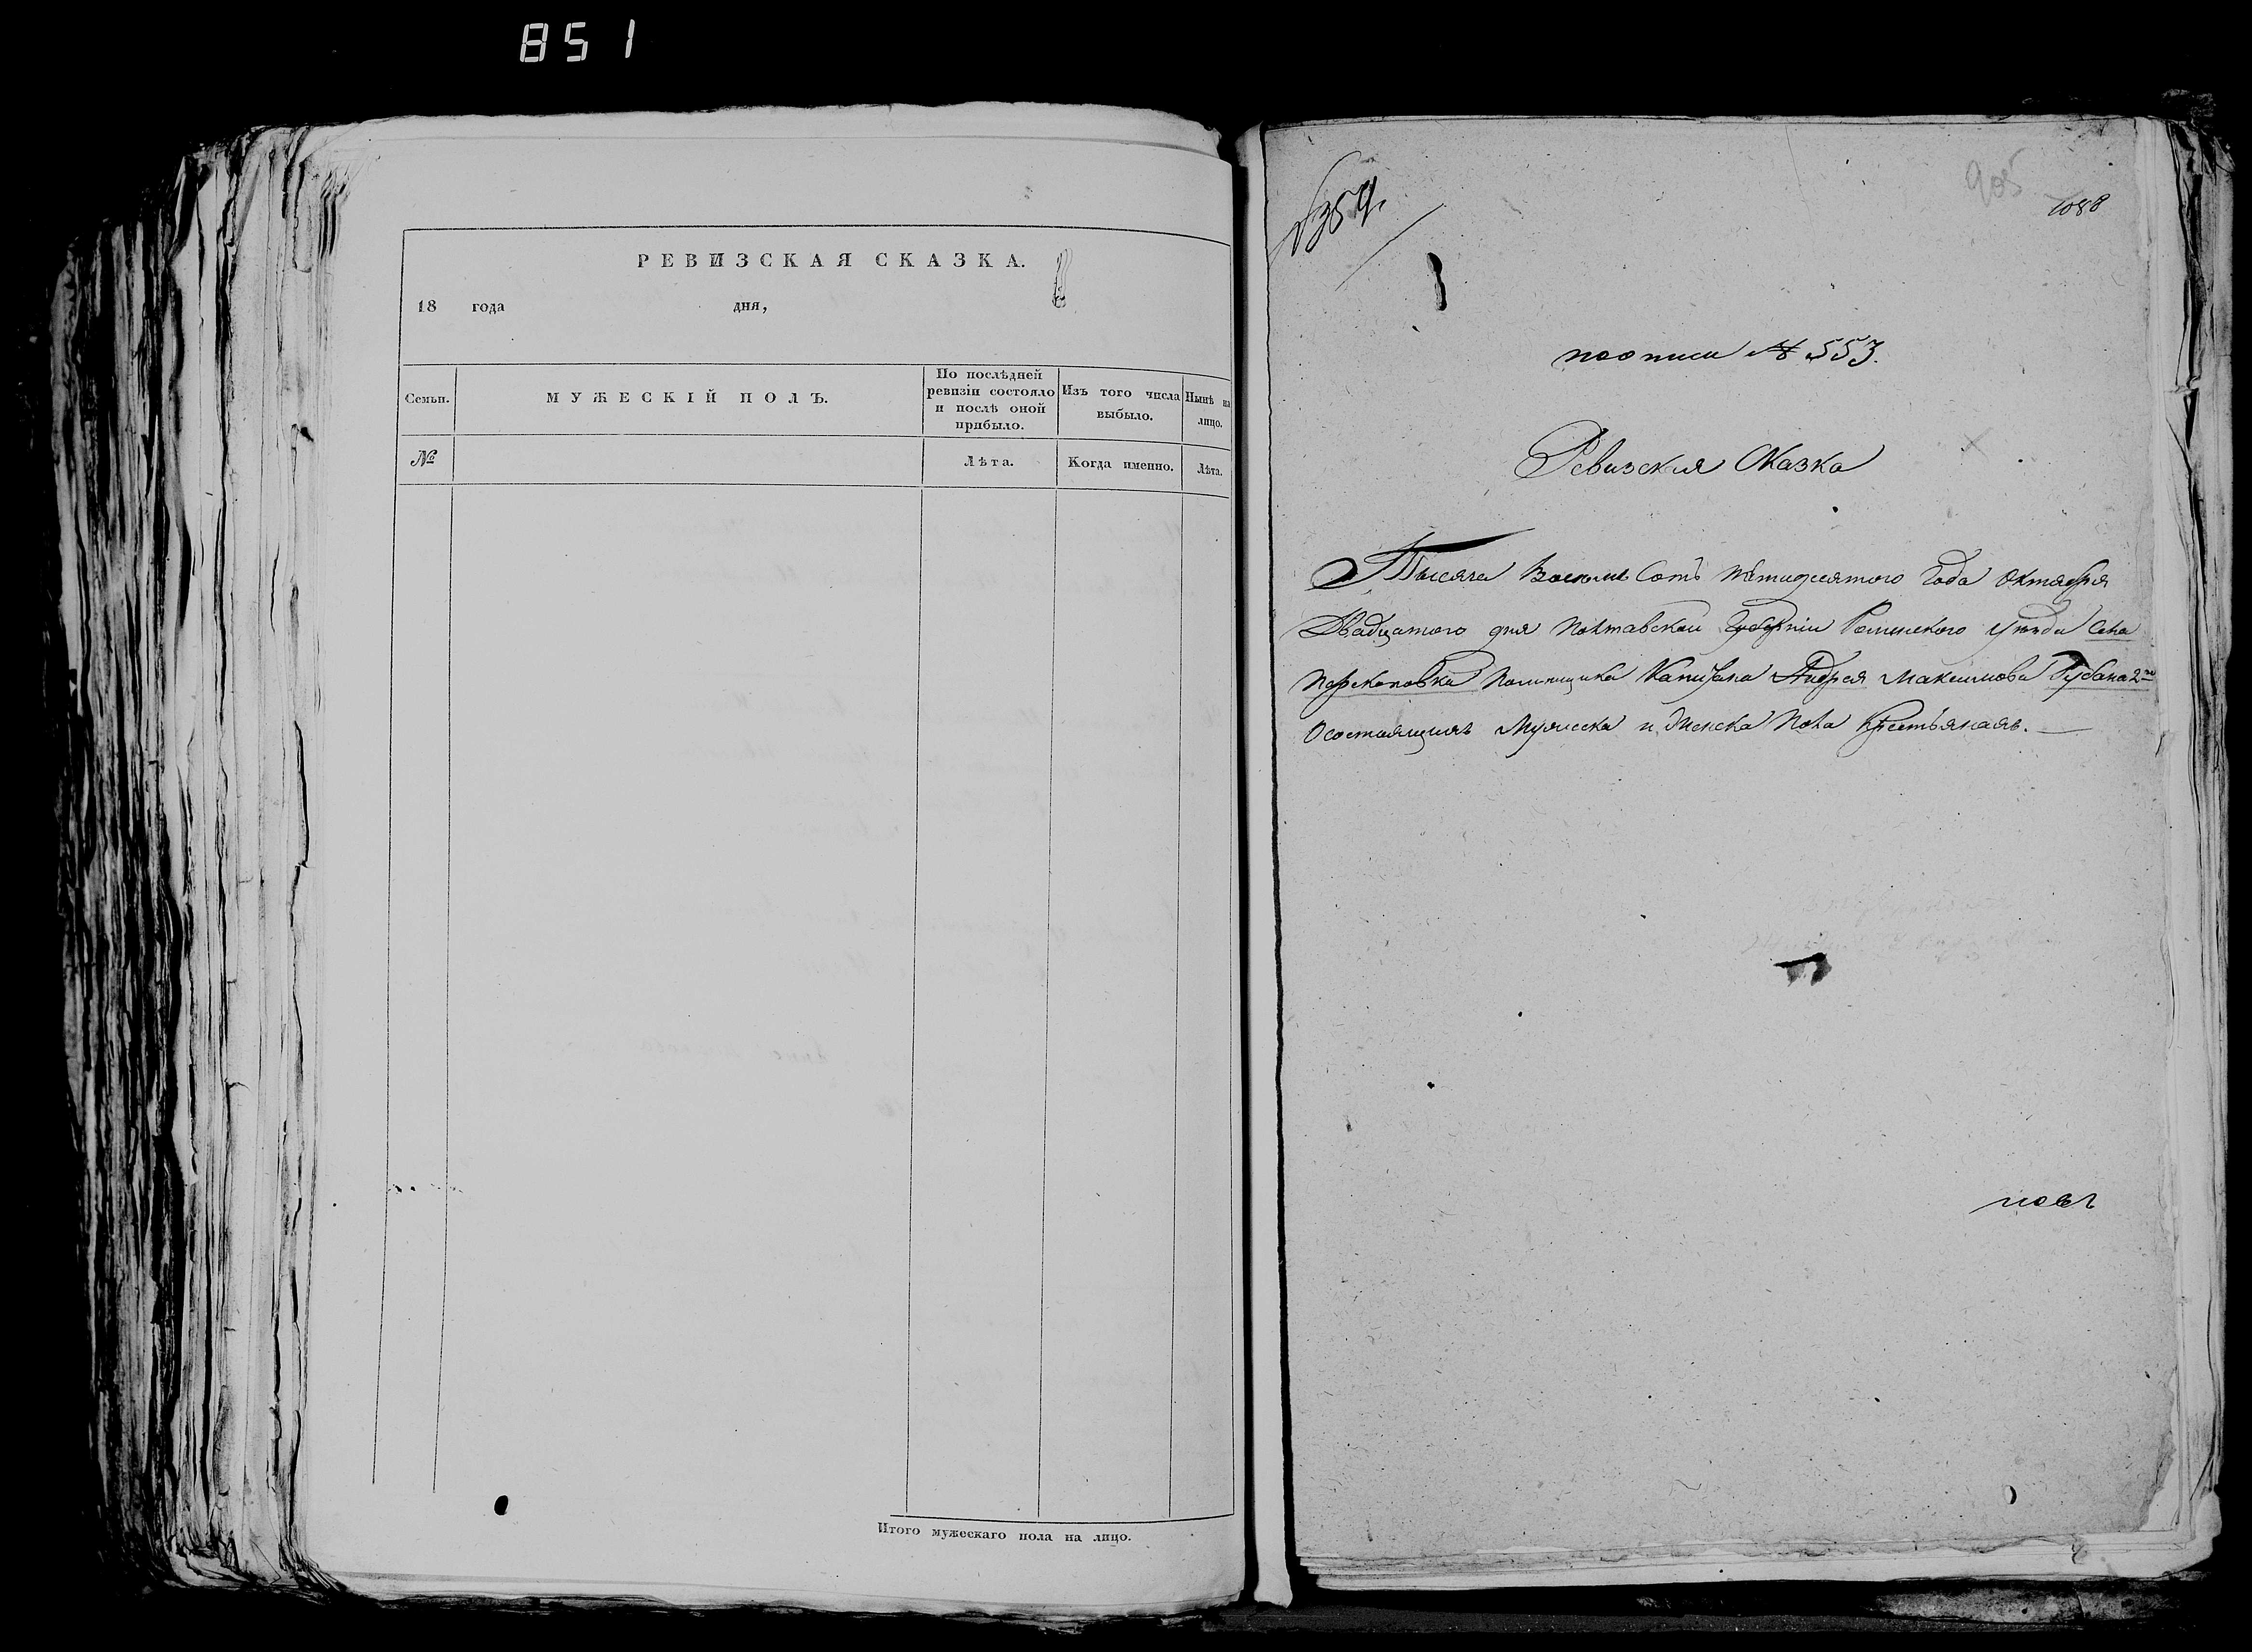 851
РЕВИЗСКАЯ СКАЗКА.
18 года дня,
Семьи.
МУЖЕСКІЙ ПОЛЪ.
По послѣдней ревизіи состояло и послѣ оной прибыло.
Изъ того числа выбыло.
Нынѣ на лицо.
№
Лѣта.
Когда именно.
Лѣта.
Итого мужескаго пола на лицо.
905
1088
по описи № 553.
Ревизская Сказка
Тысяча Восемь Сотъ пятидесятого Года Октября
Двадцатого дня Полтавской Губерніи Роменского уѣзда Села
Перекоповки помещика Капитана Андрея Максимова Рубана 2го
О состоящихъ Мужеска и Женска Пола Крестьянахъ.